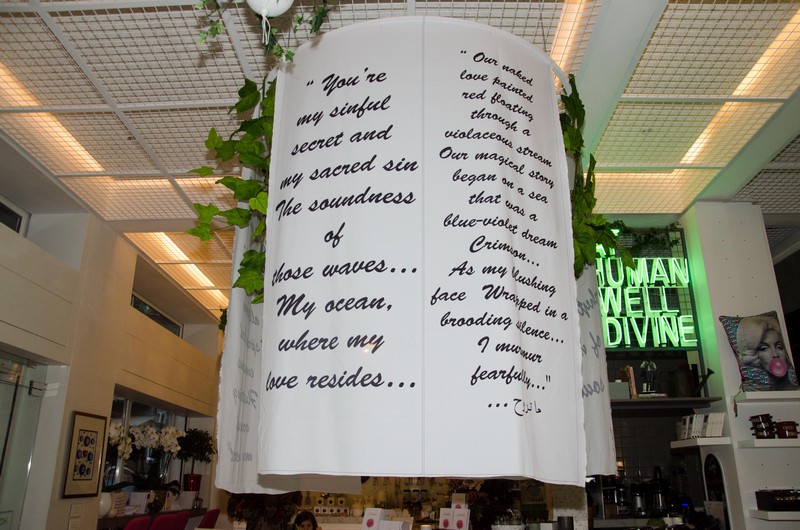 “ You're
my sinful
secret and
my sacred sin
The soundness
of
those waves...
My ocean,
where my
love resides...
“ Our naked
love painted
red floating
through a
violaceous stream
Our magical story
began on a sea
that was a
blue-violet dream
Crimson...
As my blushing
face Wrapped in a
brooding silence...
I murmur
fearfully..."
HUMAN
WELL
DIVINE